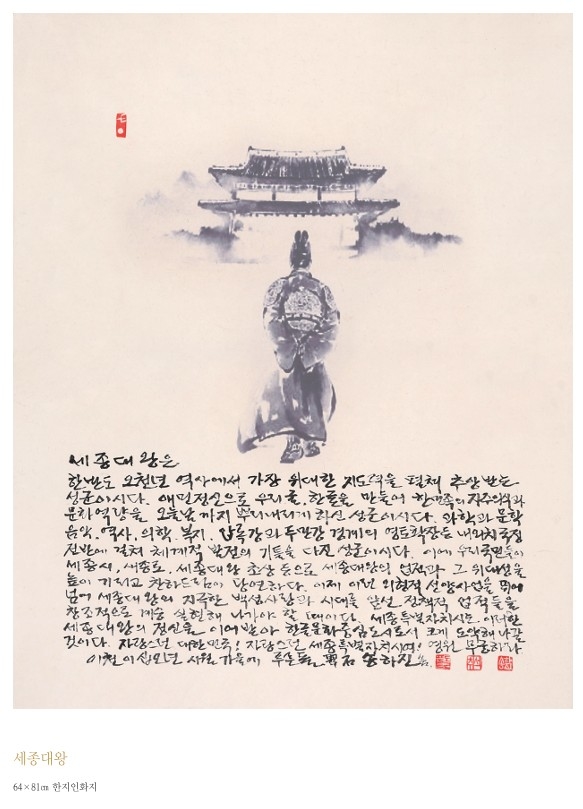 세종대왕은
한반도 오천년 역사에서 가장 위대한 지도력을 펼쳐 추앙받는
성군이시다. 애민정신으로 우리글, 한글을 만들어 한민족의 자주의식과
문화역량을 오늘날까지 뿌리내리게 하신 성군이시다. 과학과 문학
음악, 역사, 의학, 복지, 압록강과 두만강 경계의 영토확장등 내외치국정
전반에 걸쳐 체계적 발전의 기틀을 다진 성군이시다. 이에 우리국민들이
세종시, 세종로, 세종대왕 초상 등으로 세종대왕의 업적과 그 위대성을
높이 기리고 찬하드림이 당연하다. 이제 이런 외형적 선양사업을 뛰어
넘어 세종대왕의 지극한 백성사랑과 시대를 앞선 정책적 업적들을
창조적으로 계승 실현해 나가야 할 때이다. 세종특별자치시는 이러한
세종대왕의 정신을 이어받아 한글문화중심도시로서 크게 도약해 나갈
것이다. 자랑스런 대한민국! 자랑스런 세종특별자치시여! 영원 무궁하라
이천이십오년 시월 가을에 푸른돌 송하진
세종대왕
64×81㎝ 한지인화지